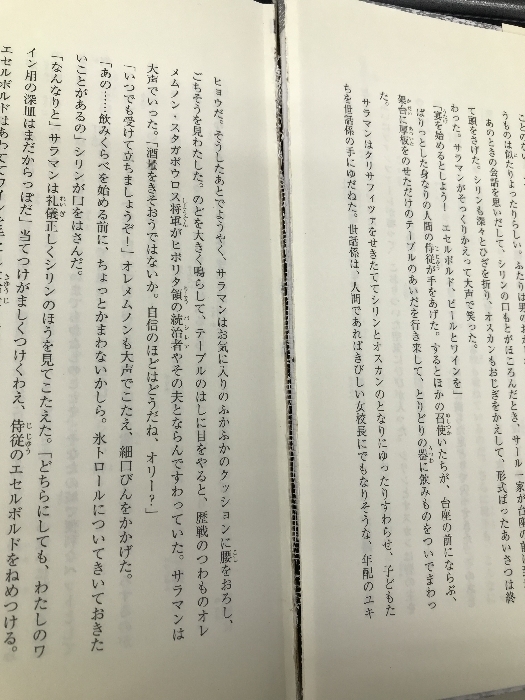 うものは似たりよったりらしい。ふたりは
あのときの会話を思いだして、シリンの口もとがほころんだとき、サール一家が台座の前
て頭をさげた。シリンも深々とひざを折り、オスカンもおじぎをかえして、形式ばったあいさつは終
わった。サラマンがそっくりかえって大声で笑った。
「宴を始めるとしよう！　エセルボルド、ビールとワインを」
ぱりっとした身なりの人間の侍従が手をあげた。するとほかの召使いたちが、台座の前にならぶ、
架台に厚板をのせただけのテーブルのあいだを行き来して、とりどりの器に飲みものをついでまわっ
た。
サラマンはクリサフィツァをせきたててシリンとオスカンのとなりにゆったりすわらせ、子どもた
ちを世話係の手にゆだねた。世話係は、人間であればきびしい女校長にでもなりそうな、年配のユキ
ヒョウだ。そうしたあとでようやく、サラマンはお気に入りのふかふかのクッションに腰をおろし、
ごちそうを見わたした。のどを大きく鳴らして、テーブルのはしに目をやると、歴戦のつわものオレ
メムノン・スタガボウロス将軍がヒポリタ領の統治者やその夫とならんですわっていた。サラマンは
大声でいった。「酒量をきそおうではないか。自信のほどはどうだね、オリー？」
「いつでも受けて立ちましょうぞ！」オレメムノンも大声でこたえ、細口びんをかかげた。
「あの……飲みくらべを始める前に、ちょっとかまわないかしら。氷トロールについてきいておきた
いことがあるの」シリンが口をはさんだ。
「なんなりと」サラマンは礼儀正しくシリンのほうを見てこたえた。「どちらにしても、わたしのワ
イン用の深皿はまだからっぽだ」当てつけがましくつけくわえ、侍従のエセルボルドをねめつける。
エセルボルドはあわててワインを